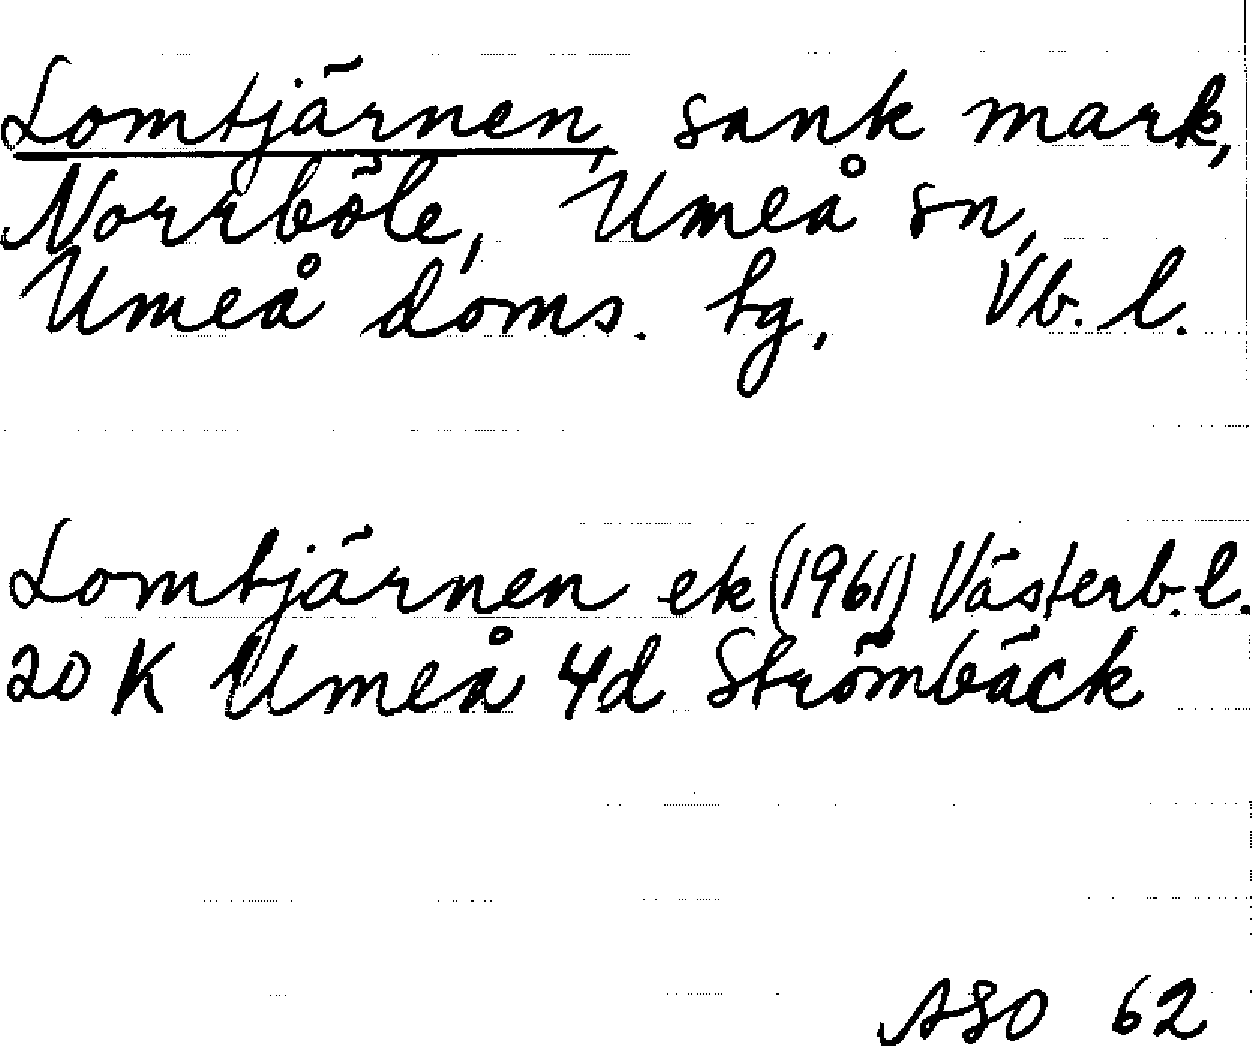 Lomtjärnen, sank mark,
Norrböle, Umeå sn,
Umeå doms. tg, Vb. l.
Lomtjärnen ek (1961) Västerb. l.
20 K Umeå 4d Strömbäck
ASO 62